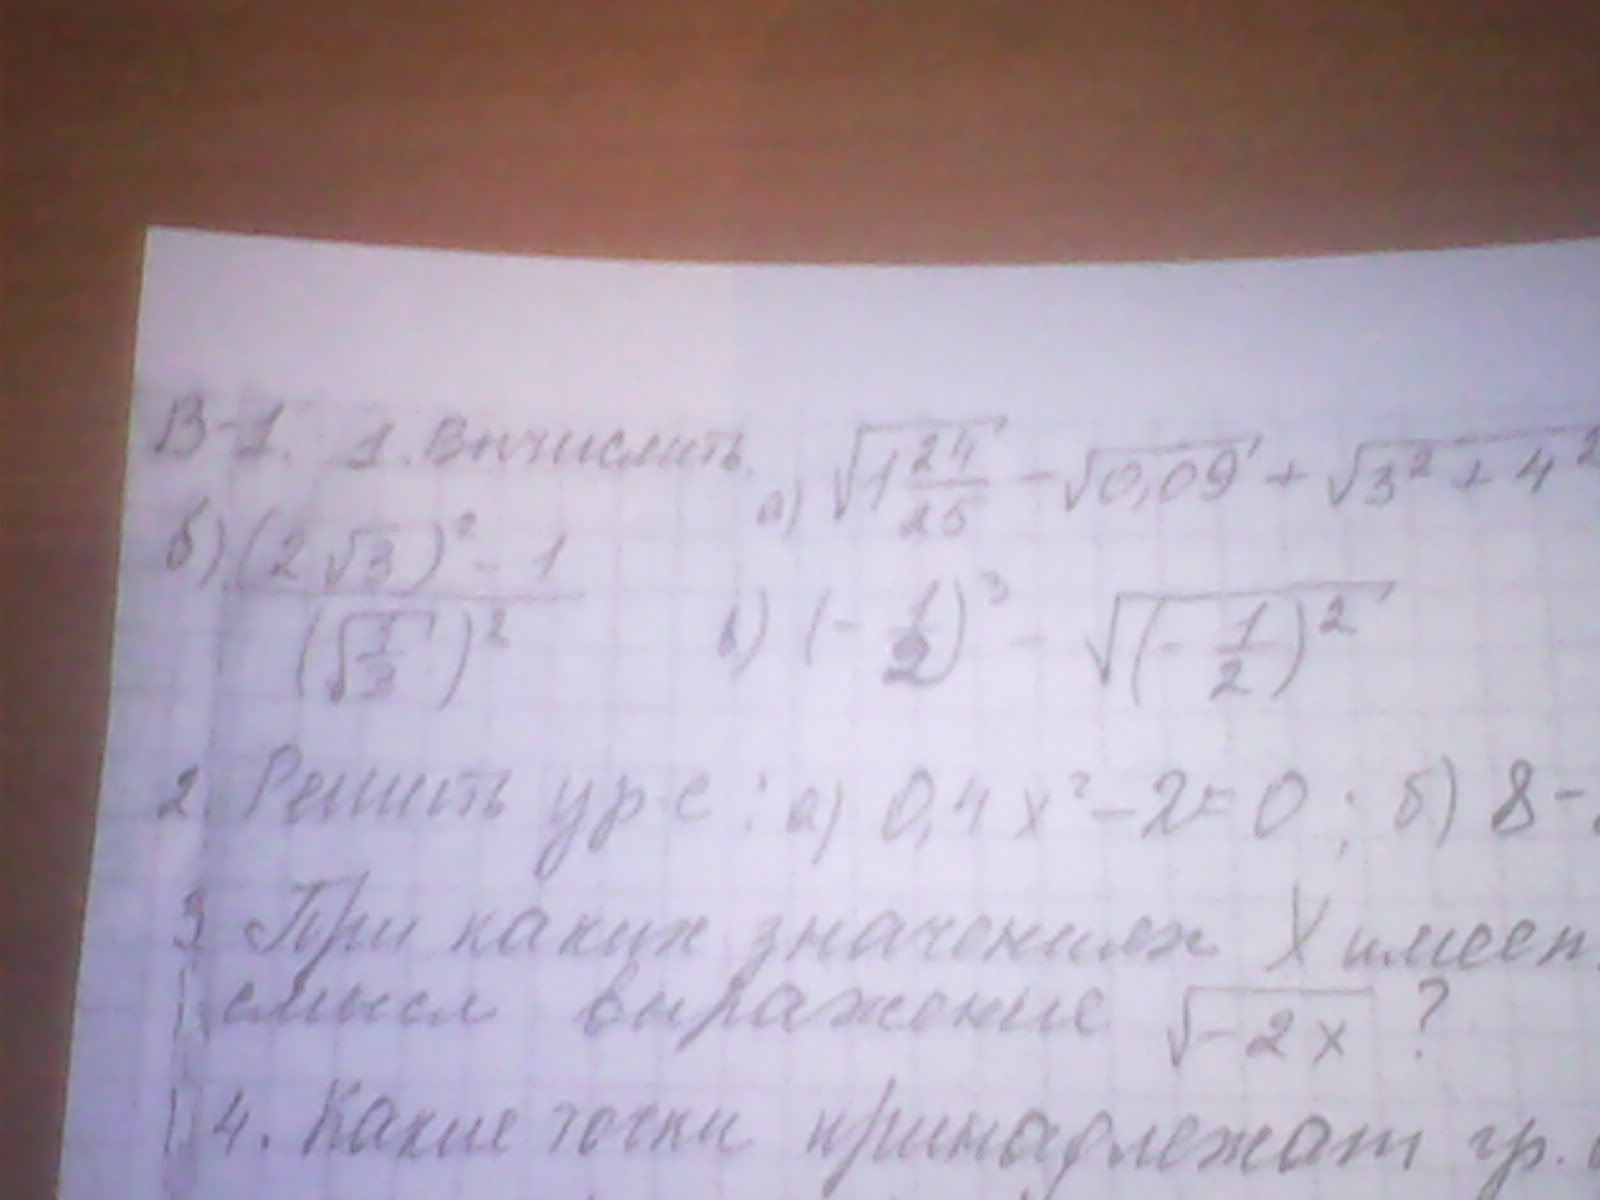 В-1. 1. Вычислить а) √(1 24/25) - √0,09 + √(3² + 4²
б) ((2√3)² - 1)/(√(1/3))² в) (-1/2)³ - √((-1/2)²)
2. Решить ур-е: а) 0,4x² - 2 = 0; б) 8 -
3 При каких значениях X имеет
смысл выражение √(-2x) ?
4. Какие точки принадлежат гр.